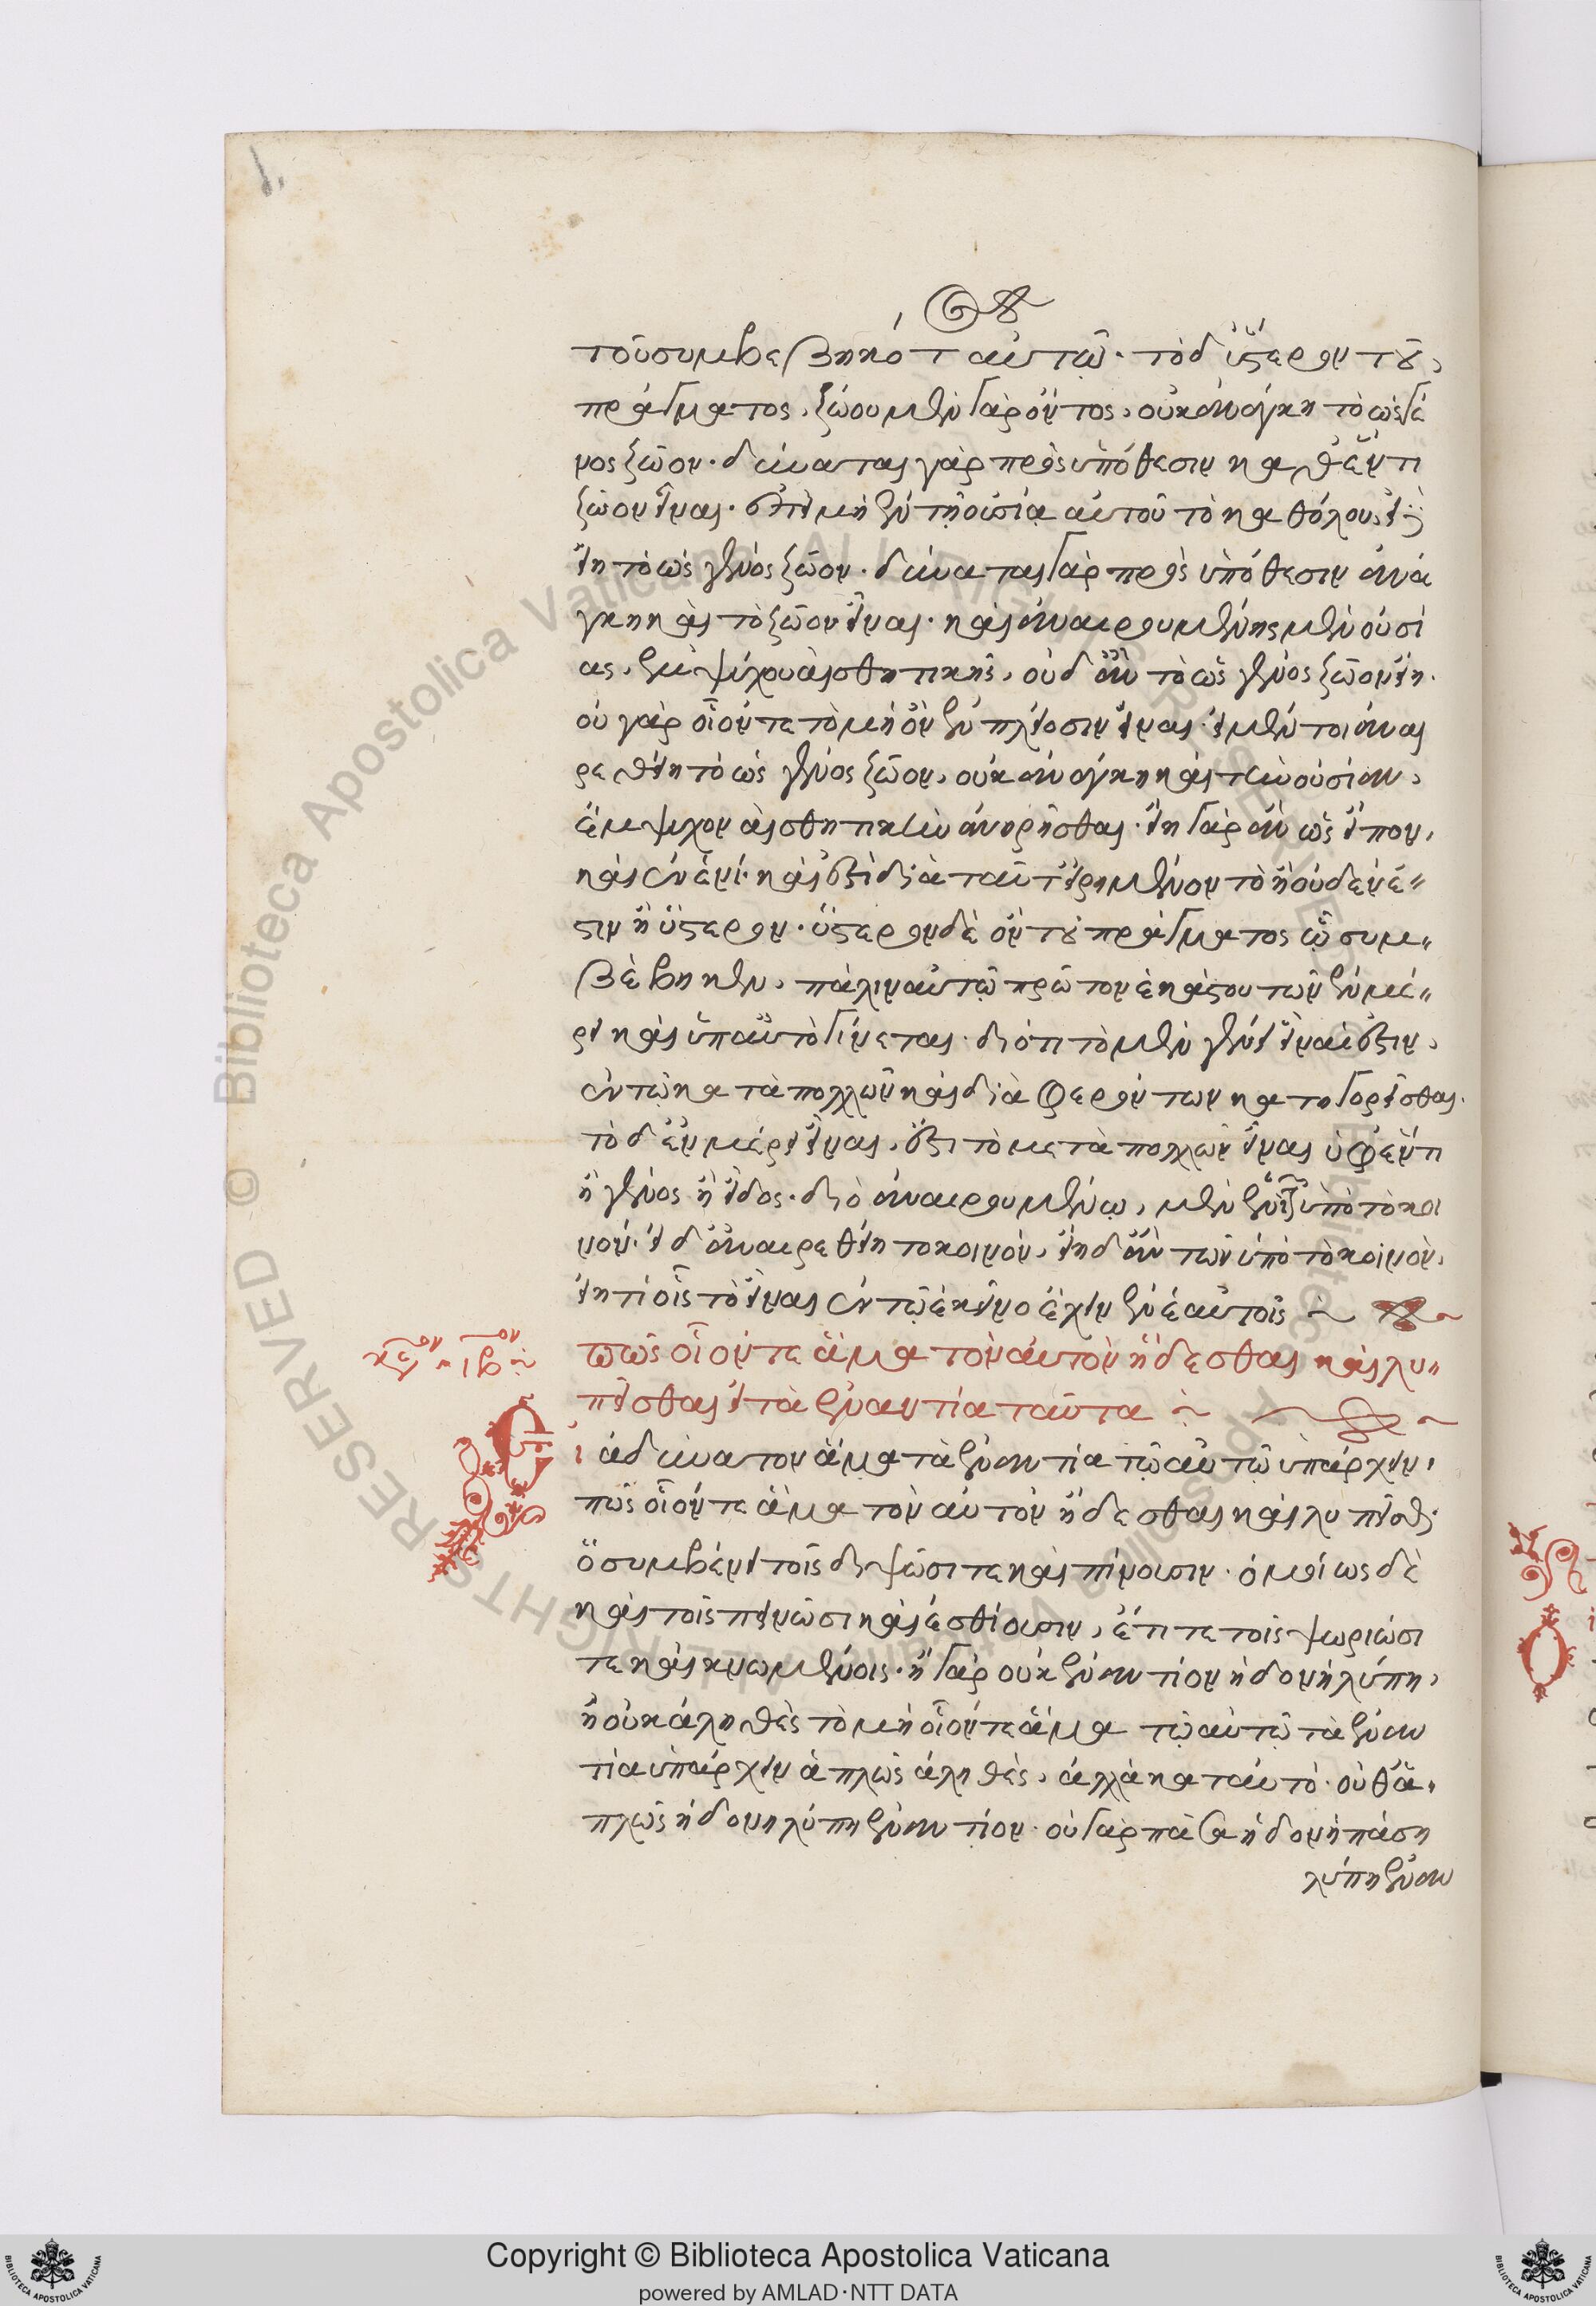 τοῦ συμβεβηκότ αὐτῶ· τὸ δ' ὕστερον τοῦ
πράγματος, ζώου μὲν γὰρ ὄντος, οὐκ ἀνάγκη τὸ ὡς γέ
νος ζῶον· δύναται γὰρ πρὸς ὑπόθεσιν καθ' ἕν τι
ζῶον εἶναι· ἐπεὶ μὴ ἐν τῇ οὐσίᾳ αὐτοῦ τὸ καθόλου, εἰ δ'
εἴη τὸ ὡς γένος ζῶον· δύναται γὰρ πρὸς ὑπόθεσιν ἀνά
γκη καὶ τὸ ζῶον εἶναι· καὶ ἀναιρουμένης μὲν οὐσί
ας, ἐμψύχου αἰσθητικῆς, οὐδ' ἂν τὸ ὡς γένος ζῶον εἴη·
οὐ γὰρ οἷόν τε τὸ μὴ ὂν ἐν πλείοσιν εἶναι· εἰ μέντοι ἀναι
ρεθείη τὸ ὡς γένος ζῶον, οὐκ ἀνάγκη καὶ τὴν οὐσίαν,
ἔμψυχον αἰσθητικὴν ἀνῃρῆσθαι· εἴη γὰρ ἂν ὡς εἶπον,
καὶ ἐν ἑνί· καὶ ἔστι διὰ ταῦτ' εἰρημένον τὸ ἢ οὐδέν ἐ-
στιν ἢ ὕστερον· ὕστερον δὲ ὂν τοῦ πράγματος ᾧ συμ-
βέβηκεν, πάλιν αὐτῶ πρῶτον ἑκάστου τῶν ἐν μέ-
ρει καὶ ὑπ' αὐτὸ γίνεται· διότι τὸ μὲν γένει εἶναι ἐστιν,
ἐν τῶ κατὰ πολλῶν καὶ διαφερόντων κατηγορεῖσθαι·
τὸ δ' ἐν μέρει εἶναι, ἔστι τὸ μετὰ πολλῶν εἶναι ὑφ' ἕν τι
ἢ γένος ἢ εἶδος· διὸ ἀναιρουμένω, μὲν ὑπὸ τὸ κοι
νόν· εἰ δ' ἀναιρεθείη το κοινόν, εἴη δ' ἂν τῶν ὑπὸ τὸ κοινὸν,
εἴη τι οἷς τὸ εἶναι ἐν τῷ ἐκεῖνο ἔχειν ἐν ἑαυτοῖς
πῶς οἷόν τε ἅμα τὸν αὐτὸν ἥδεσθαι καὶ λυ-
πεῖσθαι εἰ τὰ ἐναντία ταῦτα
Ει ἀδύνατον ἅμα τὰ ἐναντία τῶ αὐτῶ ὑπάρχειν,
πῶς οἷόν τε ἅμα τὸν αὐτὸν ἥδεσθαι καὶ λυπεῖσθαι·
ὃ συμβαίνει τοῖς διψῶσί τε καὶ πίνουσιν· ὁμοίως δὲ
καὶ τοῖς πεινῶσι καὶ ἐσθίουσιν, ἔτι τε τοῖς ψωριῶσί
τε καὶ κνωμένοις· ἢ γὰρ οὐκ ἐναντίον ἡδονὴ λύπη,
ἢ οὐκ ἀληθὲς τὸ μὴ οἷόν τε ἅμα τῷ αὐτῶ τὰ ἐναν
τία ὑπάρχειν ἁπλῶς ἀληθές, ἀλλὰ κατ' αὐτὸ· οὐθ' ἁ-
πλῶς ἡδονη λύπη ἐναντίον· οὐ γὰρ πᾶσα ἡδονὴ πάσῃ
λύπη ἐναν